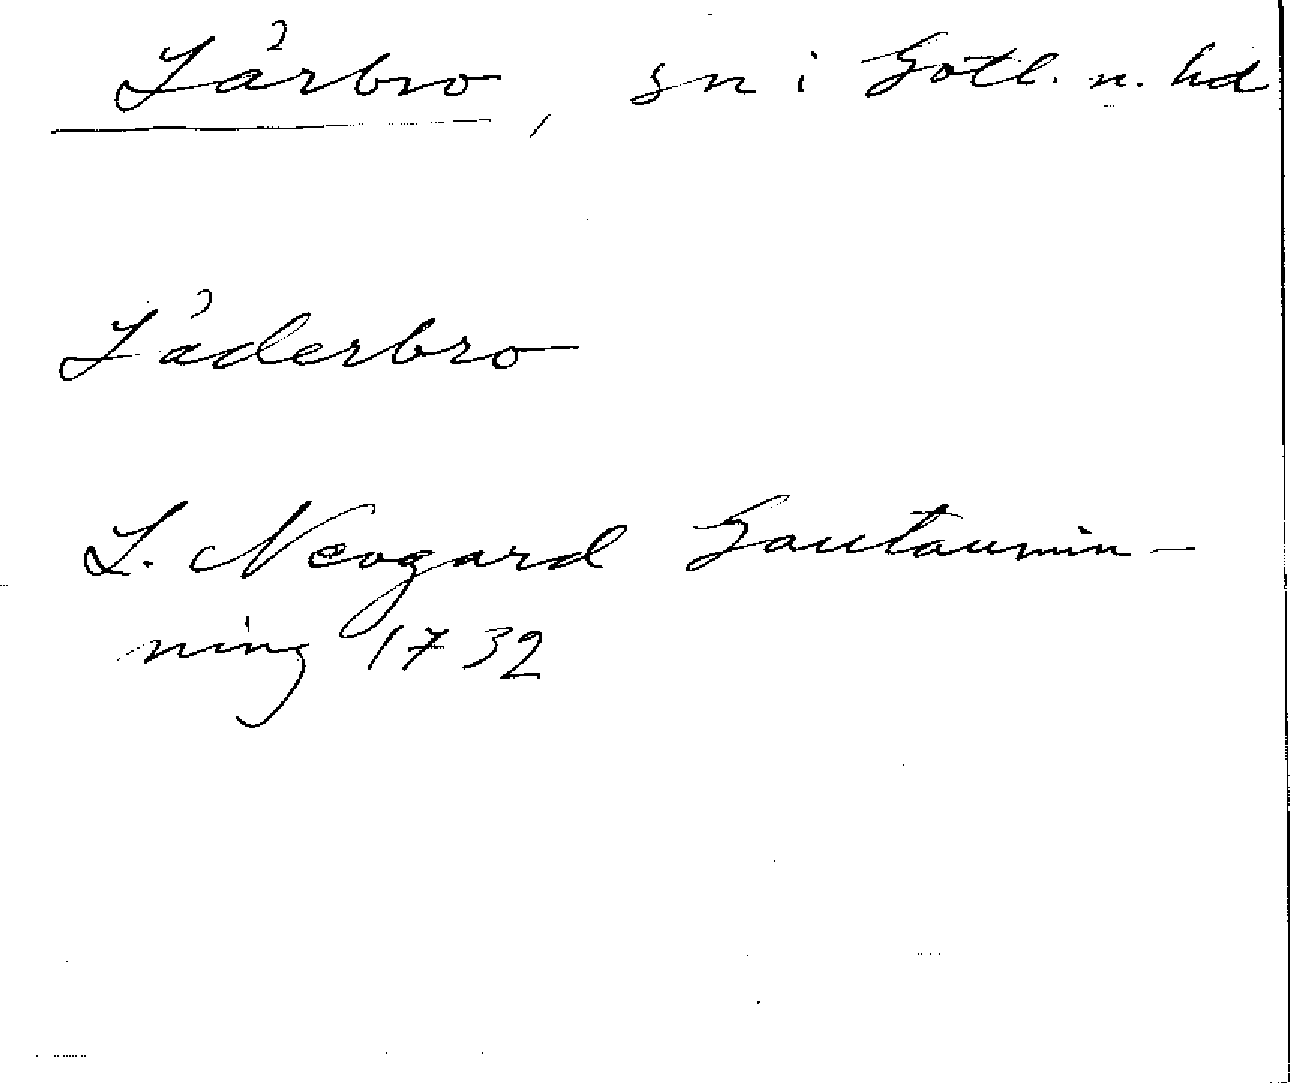 Lärbro, sn i Gotl. n. hd
Läderbro
L. Neogard Gautaumin-
ning 1732